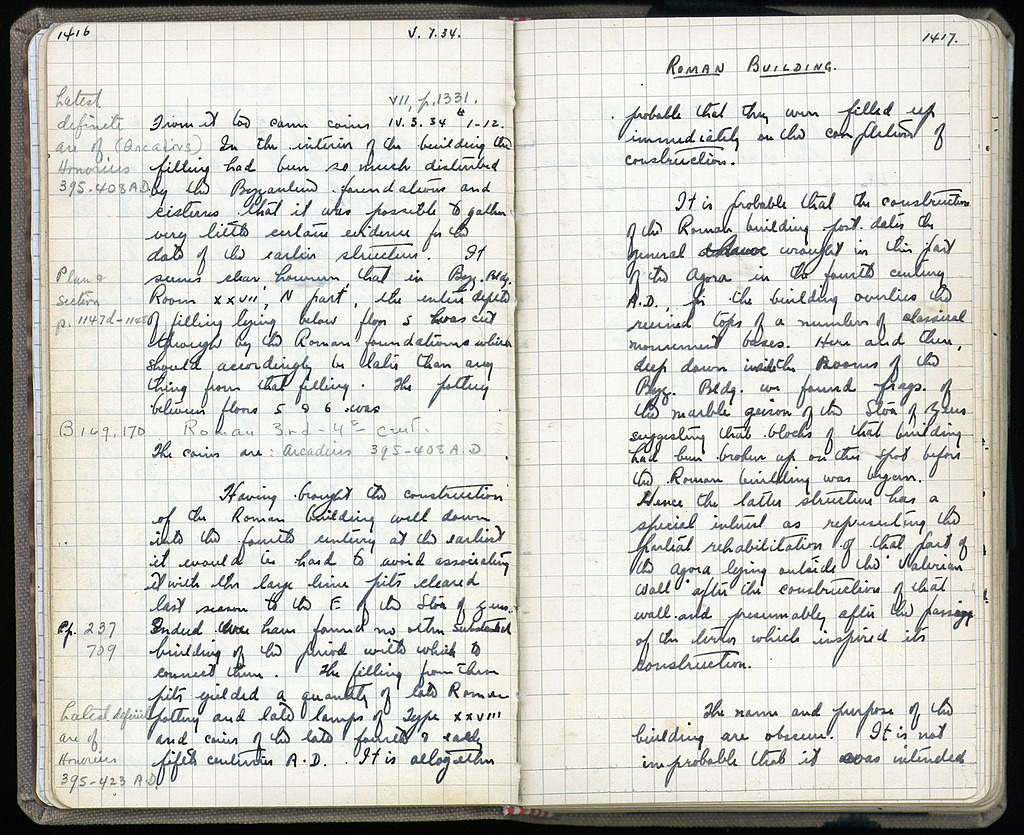 1416
V. 7.34.
VII, p.1331.
Latest
definite
are of (Arcadius)
Honorius
395-408 A.D.
From it too came coins IV.3.34 # 1-12.
In the interior of the building the
filling had been so much disturbed
by the Byzantine foundations and
cisterns that it was possible to gather
very little certain evidence for the
date of the earlier structure. It
seems clear, however that in Byz. Bldg.
Plan &
section
p. 1147d-1148
Room XXVII, N part, the entire depth
of filling lying below floor 5 was cut
through by the Roman foundations which
should accordingly be later than any
thing from that filling. The pottery
between floors 5 & 6 was
B 169, 170 Roman 3rd-4th cent.
The coins are: Arcadius 395-408 A.D
Having brought the construction
of the Roman building well down
into the fourth century at the earliest
it would be hard to avoid associating
it with the large lime pits cleared
last season to the E of the Stoa of Zeus.
Pp. 237
709
Indeed we have found no other substantial
building of the period with which to
connect them. The filling from these
pits yielded a quantity of late Roman
Latest definite
are of
Honorius
395-423 A.D.
pottery and late lamps of Type XXVIII
and coins of the late fourth & early
fifth centuries A.D. It is altogether
1417.
ROMAN BUILDING.
probable that they were filled up
immediately on the completion of
construction.
It is probable that the construction
of the Roman building post dates the
general wrought in this part
of the Agora in the fourth century
A.D., for the building overlies the
ruined tops of a number of classical
monument bases. Here and there,
deep down inside the Rooms of the
Byz. Bldg. we found frags. of
the marble geison of the Stoa of Zeus
suggesting that blocks of that building
had been broken up on this spot before
the Roman building was begun.
Hence the latter structure has a
special interest as representing the
partial rehabilitation of that part of
the Agora lying outside the Valerian
Wall after the construction of that
wall and presumably after the passing
of the terror which inspired its
construction.
The name and purpose of the
building are obscure. It is not
improbable that it was intended